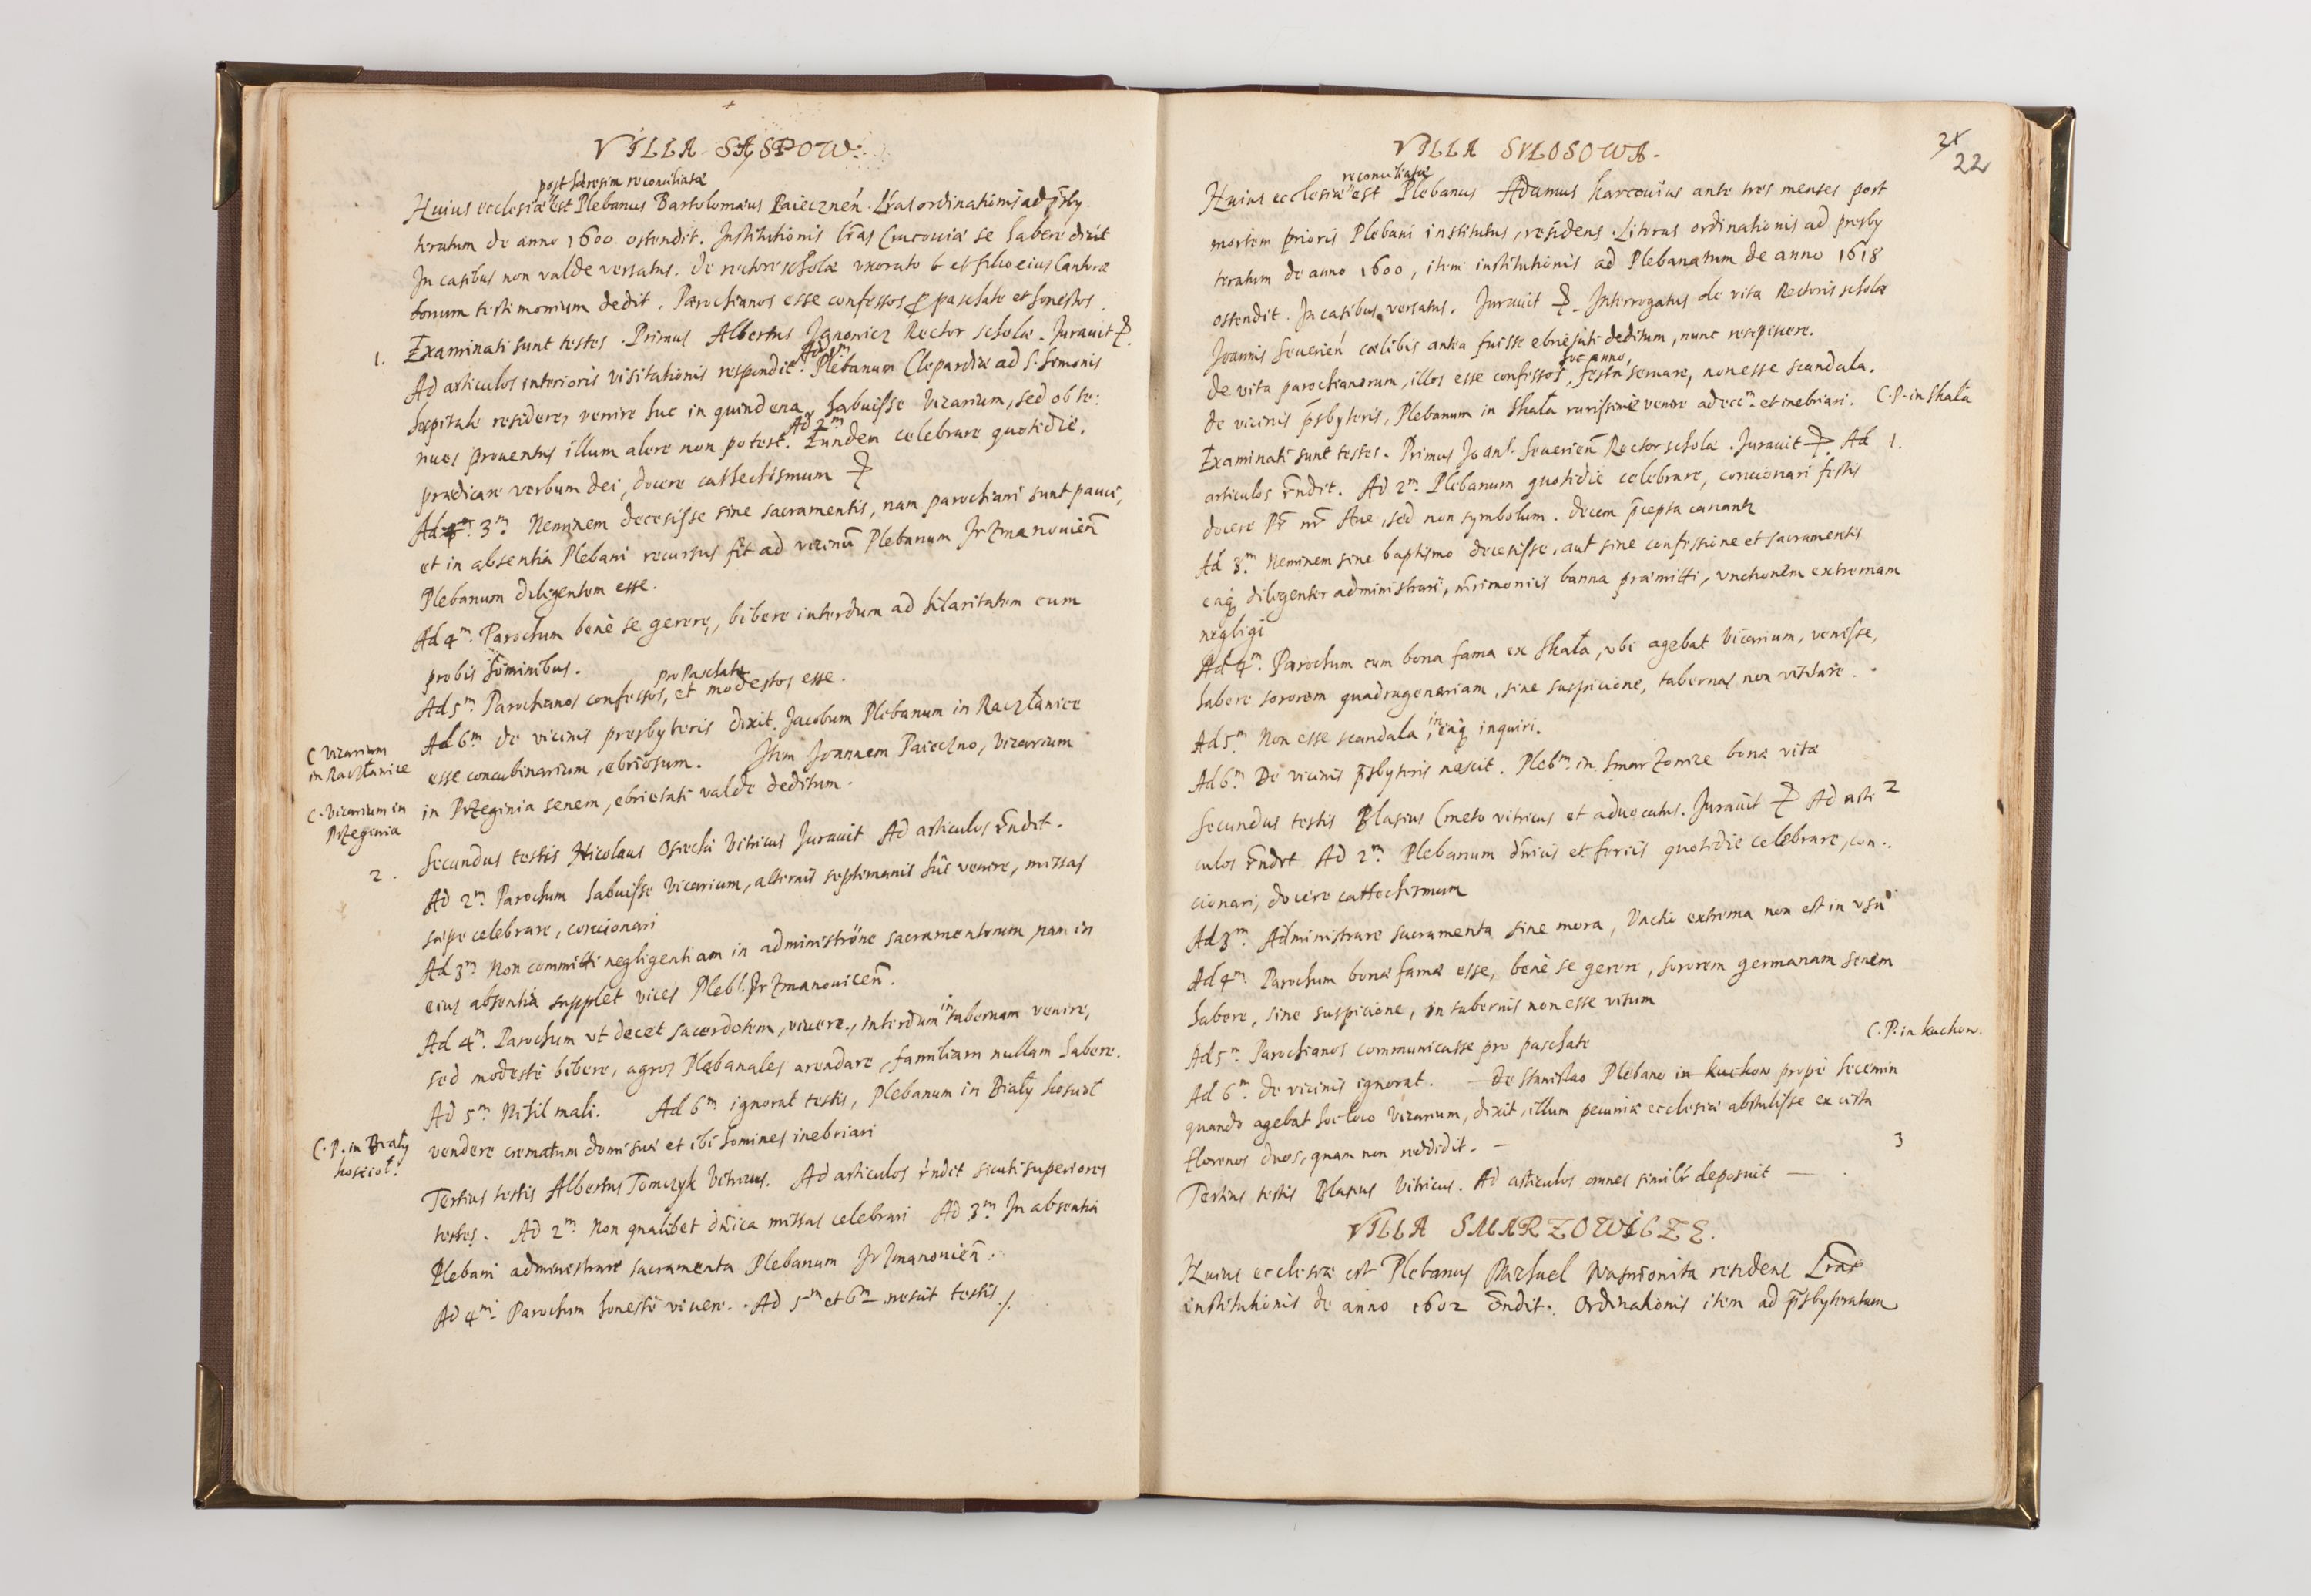 VILLA SĄSPOW:
post hæresim reconciliatæ
Huius ecclesiæ est Plebanus Bartolomæus Paiecznen̄. Lr̄as ordinationis ad p̄sby
teratum de anno 1600 ostendit. Institutionis lr̄as Cracouiæ se habere dixit
In casibus non valde versatus. De rectore scholæ vxorato et filio eius Cantore
bonum testimonium dedit. Parochianos esse confessos p paschate et honestos.
1. Examinati sunt testes. Primus Albertus Janowicz Rector scholæ. Jurauit
Ad articulos interioris visitationis respondit. Ad 1m Plebanum Clepardiæ ad S. Simonis
hospitale residere, venire huc in quindena, habuisse Vicarium, sed ob te:
nues prouentus illum alere non potest. Ad 2m Eundem celebrare quotidie,
prædicare verbum dei, docere cathechismum
Ad 3m. Neminem decessisse sine sacramentis, nam parochiani sunt pauci,
et in absentia Plebani recursus fit ad vicinū Plebanum Jrzmanouien̄
Plebanum diligentem esse.
Ad 4m. Parochum benè se gerere, bibere interdum ad hilaritatem cum
probis hominibus.
Ad 5m Parochianos confessos pro Paschate, et modestos esse.
C Vicarium
in Racłtanice
Ad 6m de vicinis presbyteris dixit. Jacobum Plebanum in Racłtanice
esse concubinarium, ebriosum. Item Joannem Paieczno, Vicarium
C. Vicarium in
Przeginia
in Przeginia senem, ebrietati valde deditum.
2. Secundus testis Nicolaus Vitricus Jurauit Ad articulos rn̄dit.
Ad 2m Parochum habuisse Vicarium, alternis septimanis huc venire, missas
sæpe celebrare, concionari
Ad 3m Non committi negligentiam in administrōne sacramentorum nam in
eius absentia supplet vices Plebs. Jrzmanouicen̄.
Ad 4m. Parochum vt decet sacerdotem, viuere, interdum in tabernam venire,
sed modestè bibere, agros Plebanales arendare, familiam nullam habere.
Ad 5m Nihil mali. Ad 6m ignorat testis, Plebanum in Biały kosciół
C. P. in Biały
kosciół.
vendere crematum domi suæ et ibi homines inebriari
Tertius testis Albertus Tomczyk Vitricus. Ad articulos rn̄dit sicuti superiores
testes. Ad 2m Non qualibet dn̄ica missas celebrari Ad 3m In absentia
Plebani administrare sacramenta Plebanum Jrzmanouien̄.
Ad 4m Parochum honestè viuere. Ad 5m et 6m nescit testis
21
22
VILLA SVŁOSOWA.
reconciliatæ
Huius ecclesiæ est Plebanus Adamus harcouius ante tres menses post
mortem prioris Plebani institutus, residens. Literas ordinationis ad presby
teratum de anno 1600, item institutionis ad Plebanatum de anno 1618
ostendit. In casibus versatus. Jurauit. Interrogatus de vita Rectoris scholæ
Joannis Seuerien̄ cælibis antea fuisse ebrietati deditum, nunc resipiscere.
De vita parochianorum, illos esse confessos hoc anno, festa seruare, non esse scandala.
De vicinis p̄sbyteris, Plebanum in Skała rarissime venire ad ecc̄m et inebriari. C. P. in Skała
Examinati sunt testes. Primus Joans Seuerien̄ Rector scholæ. Jurauit Ad 1.
articulos rn̄dit. Ad 2m Plebanum quotidie celebrare, concionari festis
docere Pr̄ nr̄ Aue, sed non symbolum. decem p̄cepta canant
Ad 3m Neminem sine baptismo decessisse, aut sine confessione et sacramentis
eaq diligenter administrari, mr̄imoniis banna præmitti, vnctionem extremam
negligi
Ad 4m. Parochum cum bona fama ex Skała, vbi agebat Vicarium, venisse,
habere sororem quadragenariam, sine suspicione, tabernas non visitare.
Ad 5m Non esse scandala, in eaq inquiri.
Ad 6m De vicinis p̄sbyteris nescit. Plebm in Smarzowice bonæ vitæ
Secundus testis Blasius Cmeto vitricus et aduocatus. Jurauit Ad arti 2
culos rn̄dit Ad 2m Plebanum dn̄icis et feriis quotidie celebrare, con..
cionari, docere cathechismum
Ad 3m. Administrare sacramenta sine mora, Vnctio extrema non est in vsu
Ad 4m Parochum bonæ famæ esse, benè se gerere, sororem germanam senem
habere, sine suspicione, in tabernis non esse visum
Ad 5m Parochianos communicasse pro paschate
C. P. in kuchow.
Ad 6m de vicinis ignorat. De Stanislao Plebano in kuchow propè Secemin
quando agebat hoc loco Vicarium, dixit, illum pecuniæ ecclesiæ abstulisse ex cista
florenos duos, quam non reddidit.
3
Tertius testis Blasius Vitricus. Ad articulos omnes simil̄r deposuit
VILLA SMARZOWICZE.
Huius ecclesiæ est Plebanus Michael residens Lr̄as
institutionis de anno 1602 on̄dit. Ordinationis item ad p̄sbyteratum